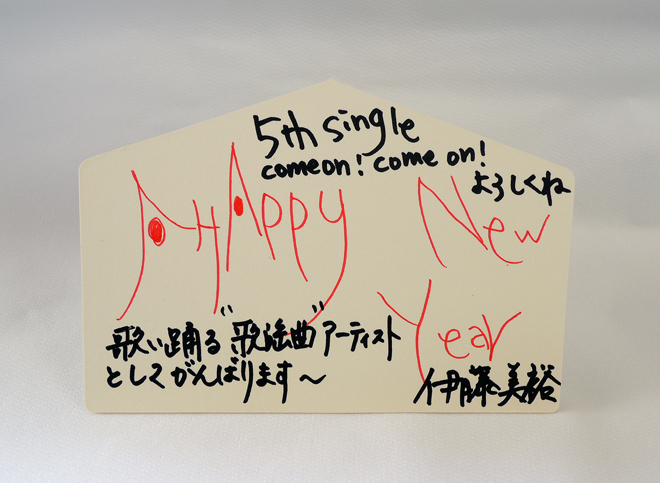 5th single
comeon! come on!
よろしくね
HAppy New
Year
歌い踊る"歌謡曲"アーティスト
としてがんばります〜
伊藤美裕